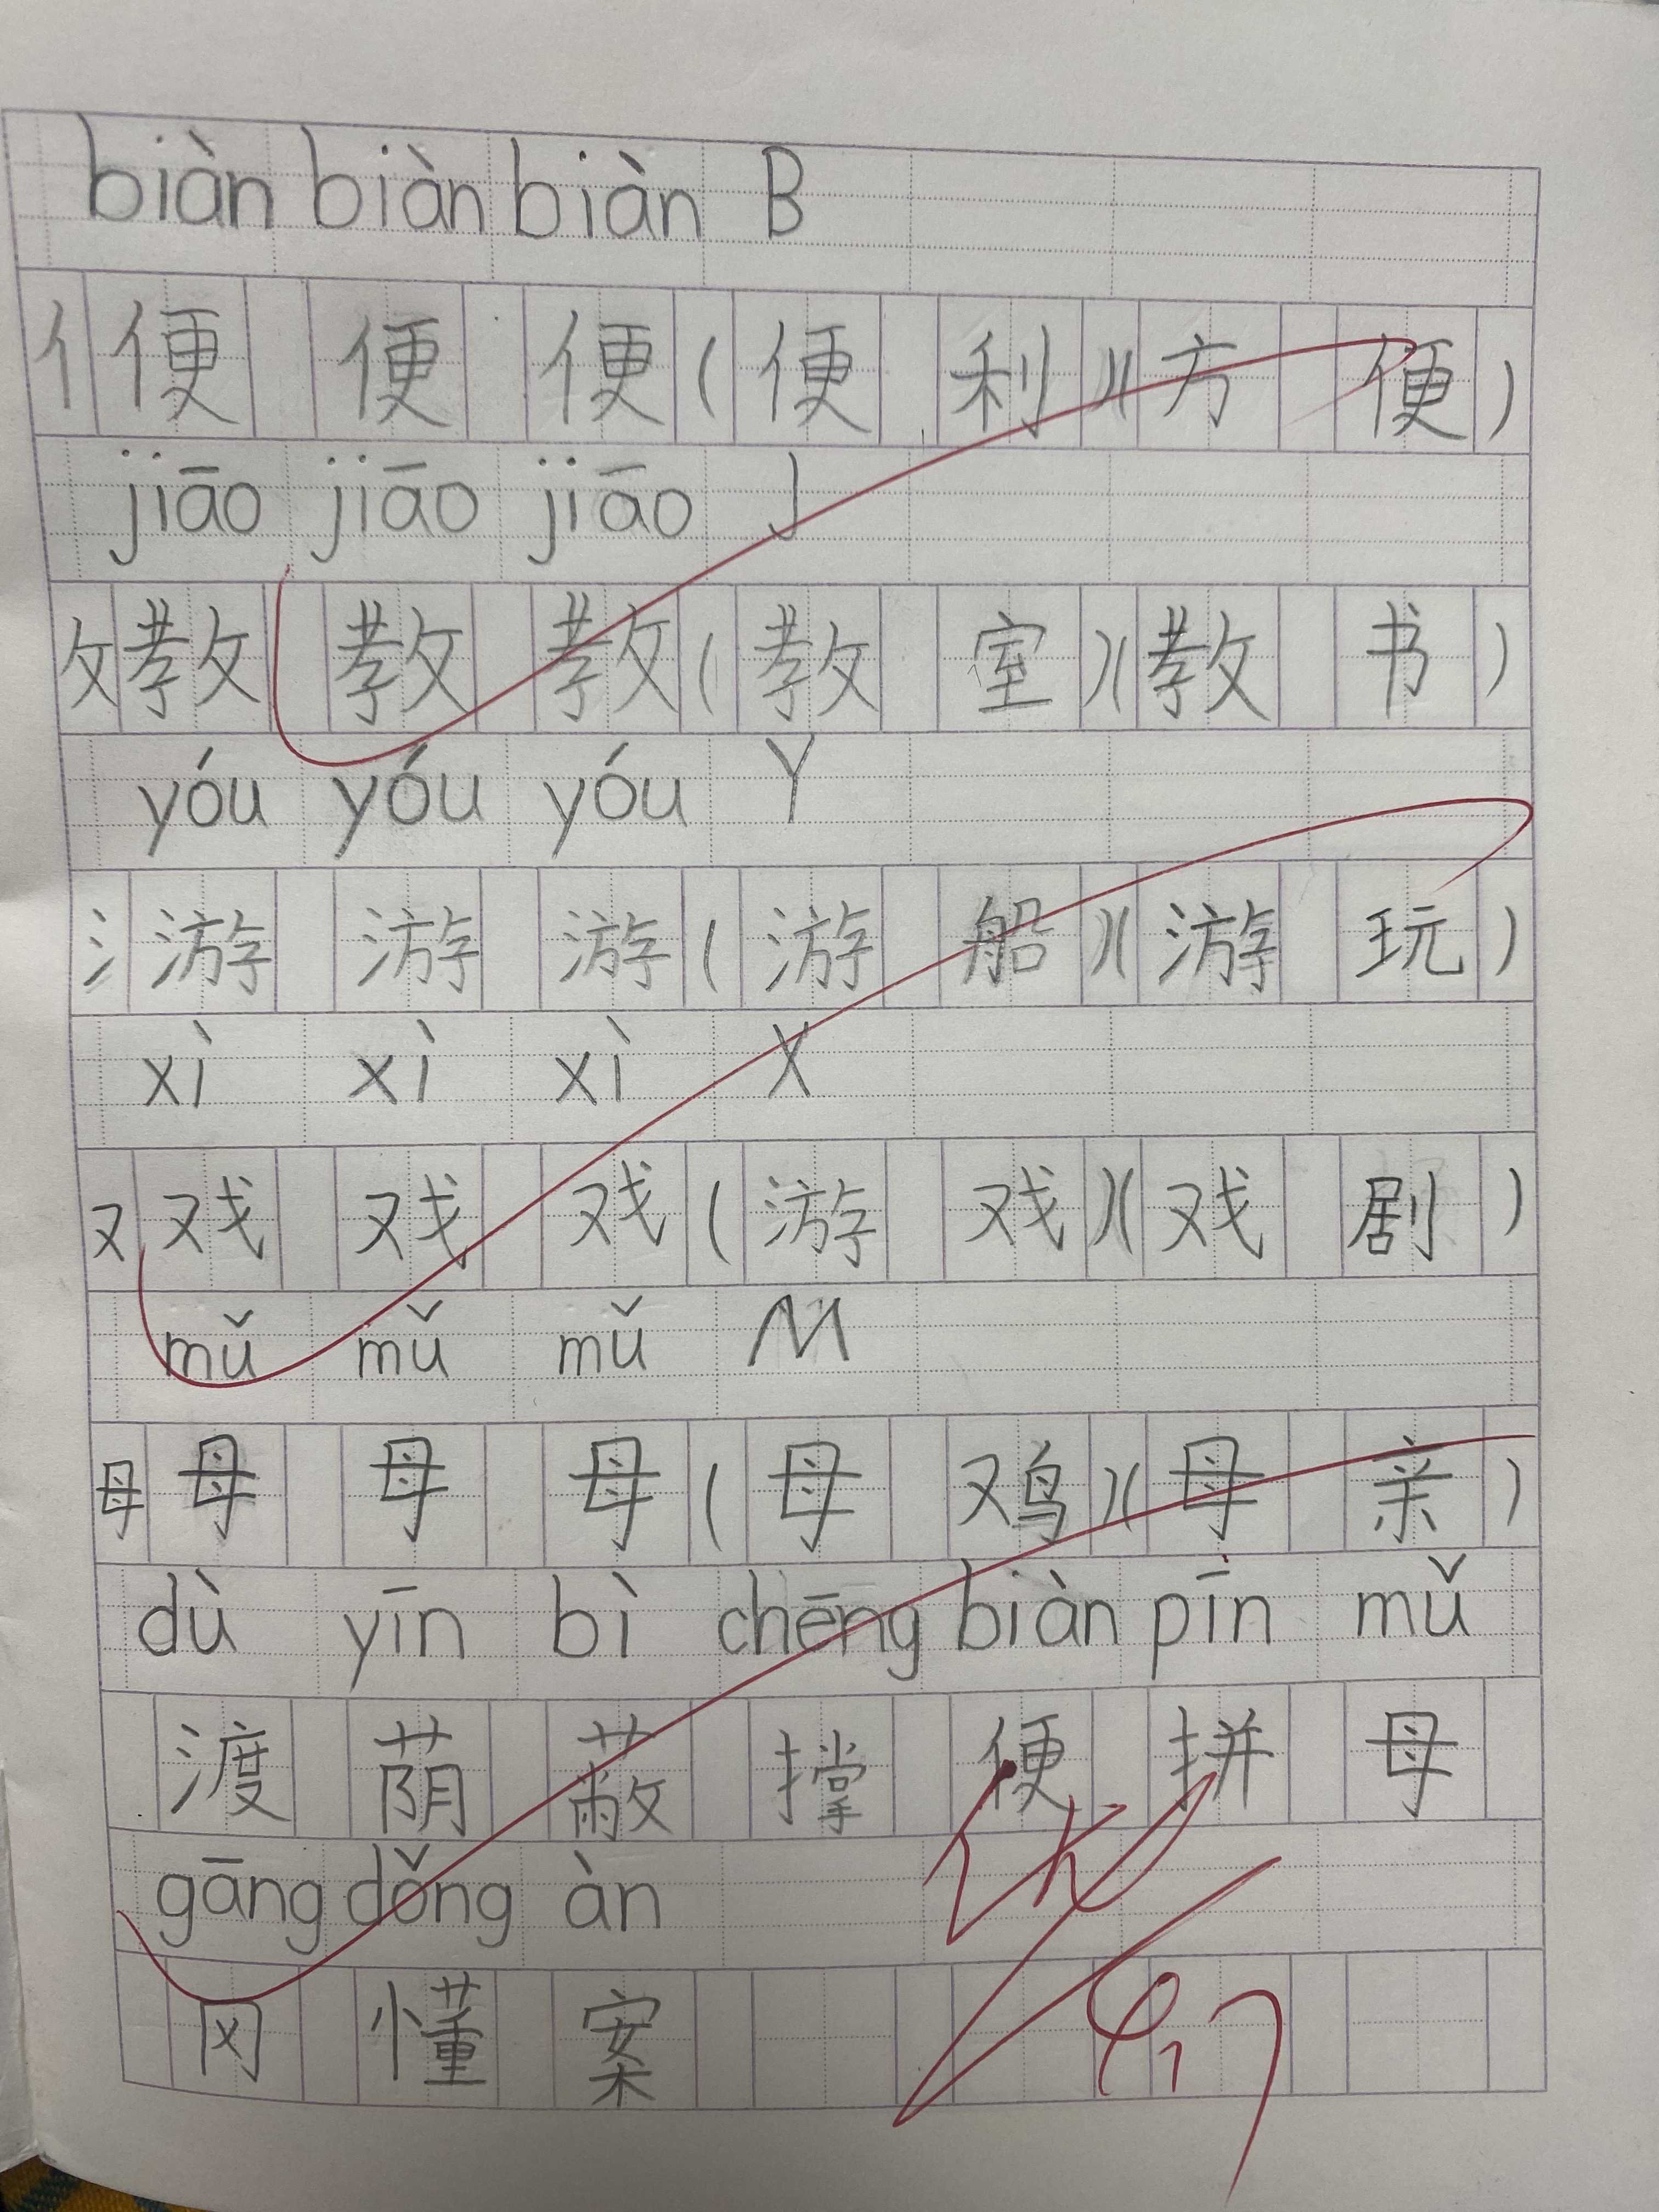 biàn biàn biàn B
亻 便 便 便 ( 便 利 )( 方 便 )
jiāo jiāo jiāo J
攵 教 教 教 ( 教 室 )( 教 书 )
yóu yóu yóu Y
氵 游 游 游 ( 游 船 )( 游 玩 )
xì xì xì X
又 戏 戏 戏 ( 游 戏 )( 戏 剧 )
mǔ mǔ mǔ M
母 母 母 母 ( 母 鸡 )( 母 亲 )
dù yīn bì chēng biàn pīn mǔ
渡 荫 蔽 撑 便 拼 母
gāng dǒng àn
冈 懂 案
优